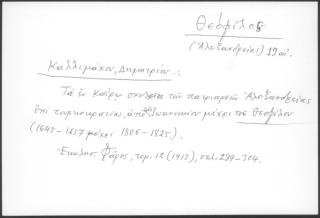 Θεόφιλος
(Ἀλεξανδρείας) 19 αἰ.
Καλλιμάχου, Δημητρίου.:
Τὰ ἐν Καΐρῳ σχολεῖα τῶν πατριαρχῶν Ἀλεξανδρείας
ἐπὶ τουρκοκρατίας, ἀπὸ τοῦ Ἰωαννικίου μέχρι τοῦ Θεοφίλου
(1645-1657 μέχρι 1805-1825).
Ἐκκλησ. Φάρος, τομ. 12 (1913), σελ. 294-304.